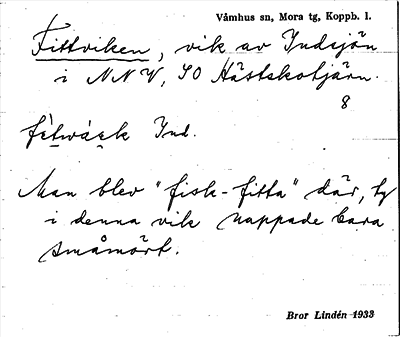 Våmhus sn, Mora tg, Koppb. l.
Fittviken, vik av Indsjön
i NNV, SO Hästskotjärn.
8
fìtwáek Ind.
Man blev "fisk-fitta" där, ty
i denna vik nappade bara
småmört.
Bror Lindén 1933